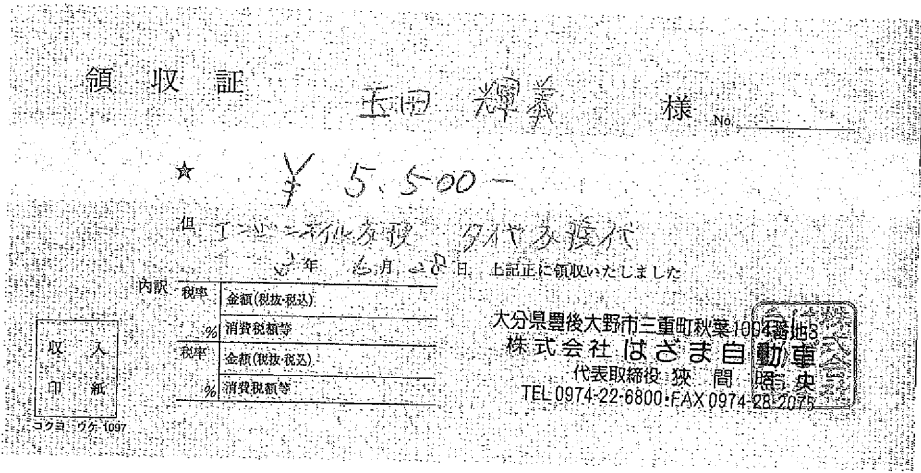 領収証
玉田 輝義 様 No.
☆ ¥5,500-
但 エンジンオイル交換 タイヤ交換代
3年 6月 28日 上記正に領収いたしました
内訳
税率 金額(税抜・税込)
% 消費税額等
税率 金額(税抜・税込)
% 消費税額等
収入
印紙
コクヨ ウケ-1097
大分県豊後大野市三重町秋葉1004番地3
株式会社 はざま自動車
代表取締役 狹間 照央
TEL 0974-22-6800・FAX 0974-28-2075